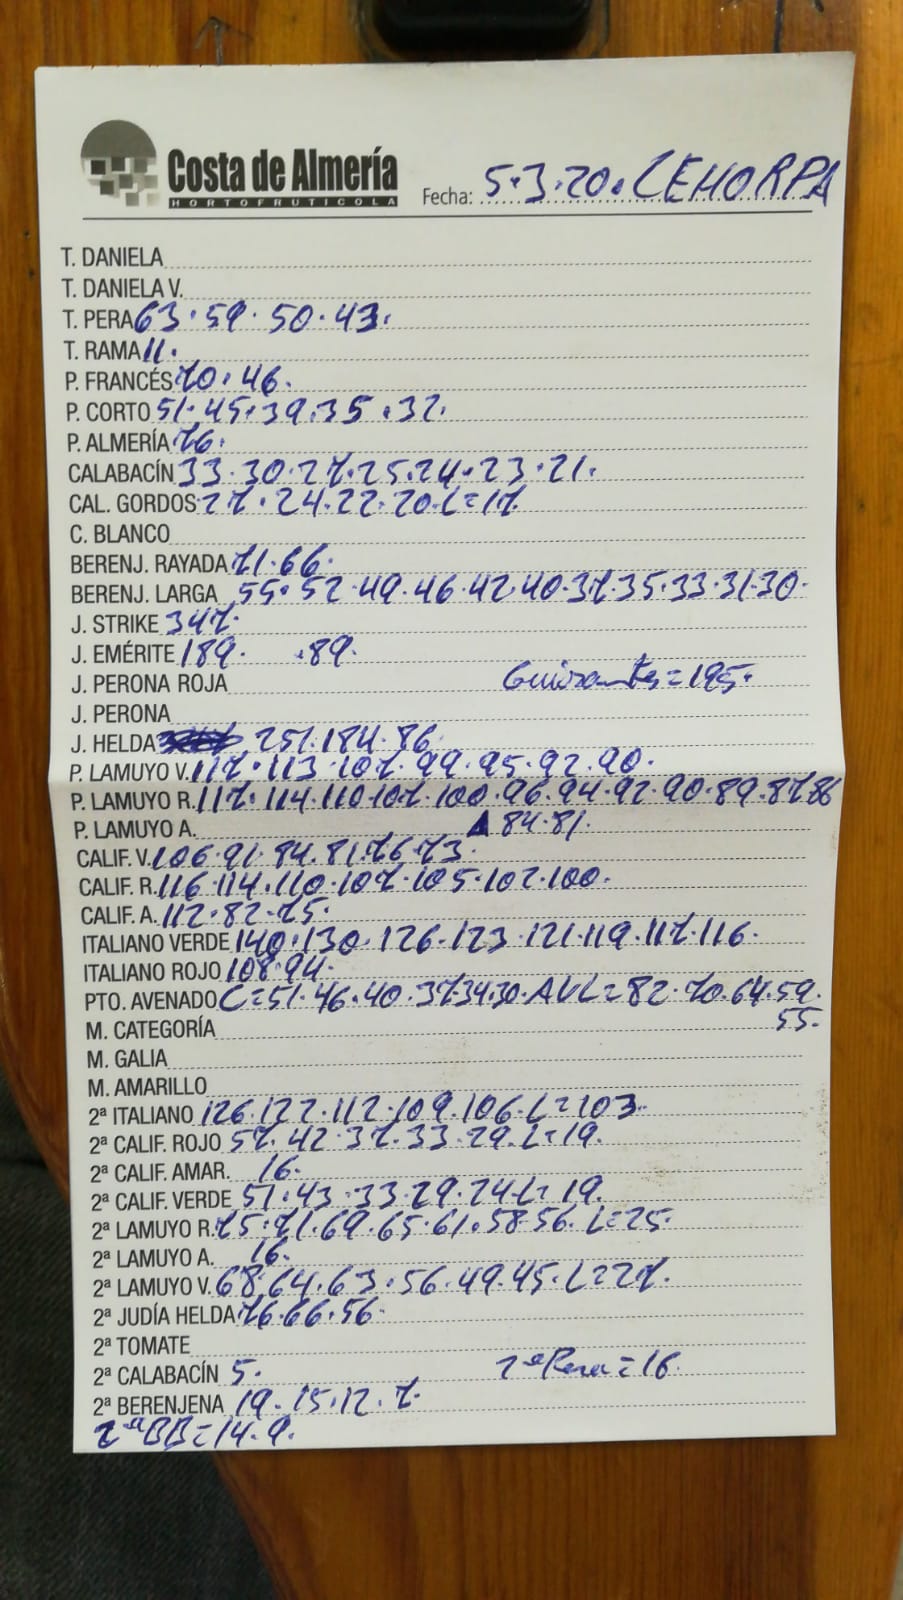 Costa de Almería
HORTOFRUTICOLA
Fecha: 5.3.20. CEHORPA
T. DANELA
T. DANIELA V.
T. PERA 63.59.50.43.
T. RAMA 11.
P. FRANCÉS 70.46.
P. CORTO 51.45.39.35.32.
P. ALMERÍA 76.
CALABACÍN 33.30.27.25.24.23.21.
CAL. GORDOS 27.24.22.20.L=17.
C. BLANCO
BERENJ. RAYADA 71.66.
BERENJ. LARGA 55.52.49.46.42.40.37.35.33.31.30.
J. STRIKE 347.
J. EMÉRITE 189. .89.
J. PERONA ROJA Guisantes=195.
J. PERONA
J. HELDA 251.184.86.
P. LAMUYO V. 117.113.107.99.95.92.90.
P. LAMUYO R. 117.114.110.107.100.96.94.92.90.89.87.86
P. LAMUYO A. 84.81.
CALIF. V. 106.91.84.81.76.73.
CALIF. R. 116.114.110.107.105.102.100.
CALIF. A. 112.82.75.
ITALIANO VERDE 140.130.126.123.121.119.117.116.
ITALIANO ROJO 108.94.
PTO. AVENADO C=51.46.40.37.34.30.AVL=82.70.64.59.
55.
M. CATEGORÍA
M. GALIA
M. AMARILLO
2ª ITALIANO 126.122.112.109.106.L=103.
2ª CALIF. ROJO 57.42.37.33.29.L=19.
2ª CALIF. AMAR. 16.
2ª CALIF. VERDE 51.43.33.29.24.L=19.
2ª LAMUYO R. 75.71.69.65.61.58.56.L=25.
2ª LAMUYO A. 16.
2ª LAMUYO V. 68.64.63.56.49.45.L=27.
2ª JUDÍA HELDA 76.66.56.
2ª TOMATE
2ª CALABACÍN 5. 2ª Pera=16.
2ª BERENJENA 19.15.12.7.
2ª BB=14.9.